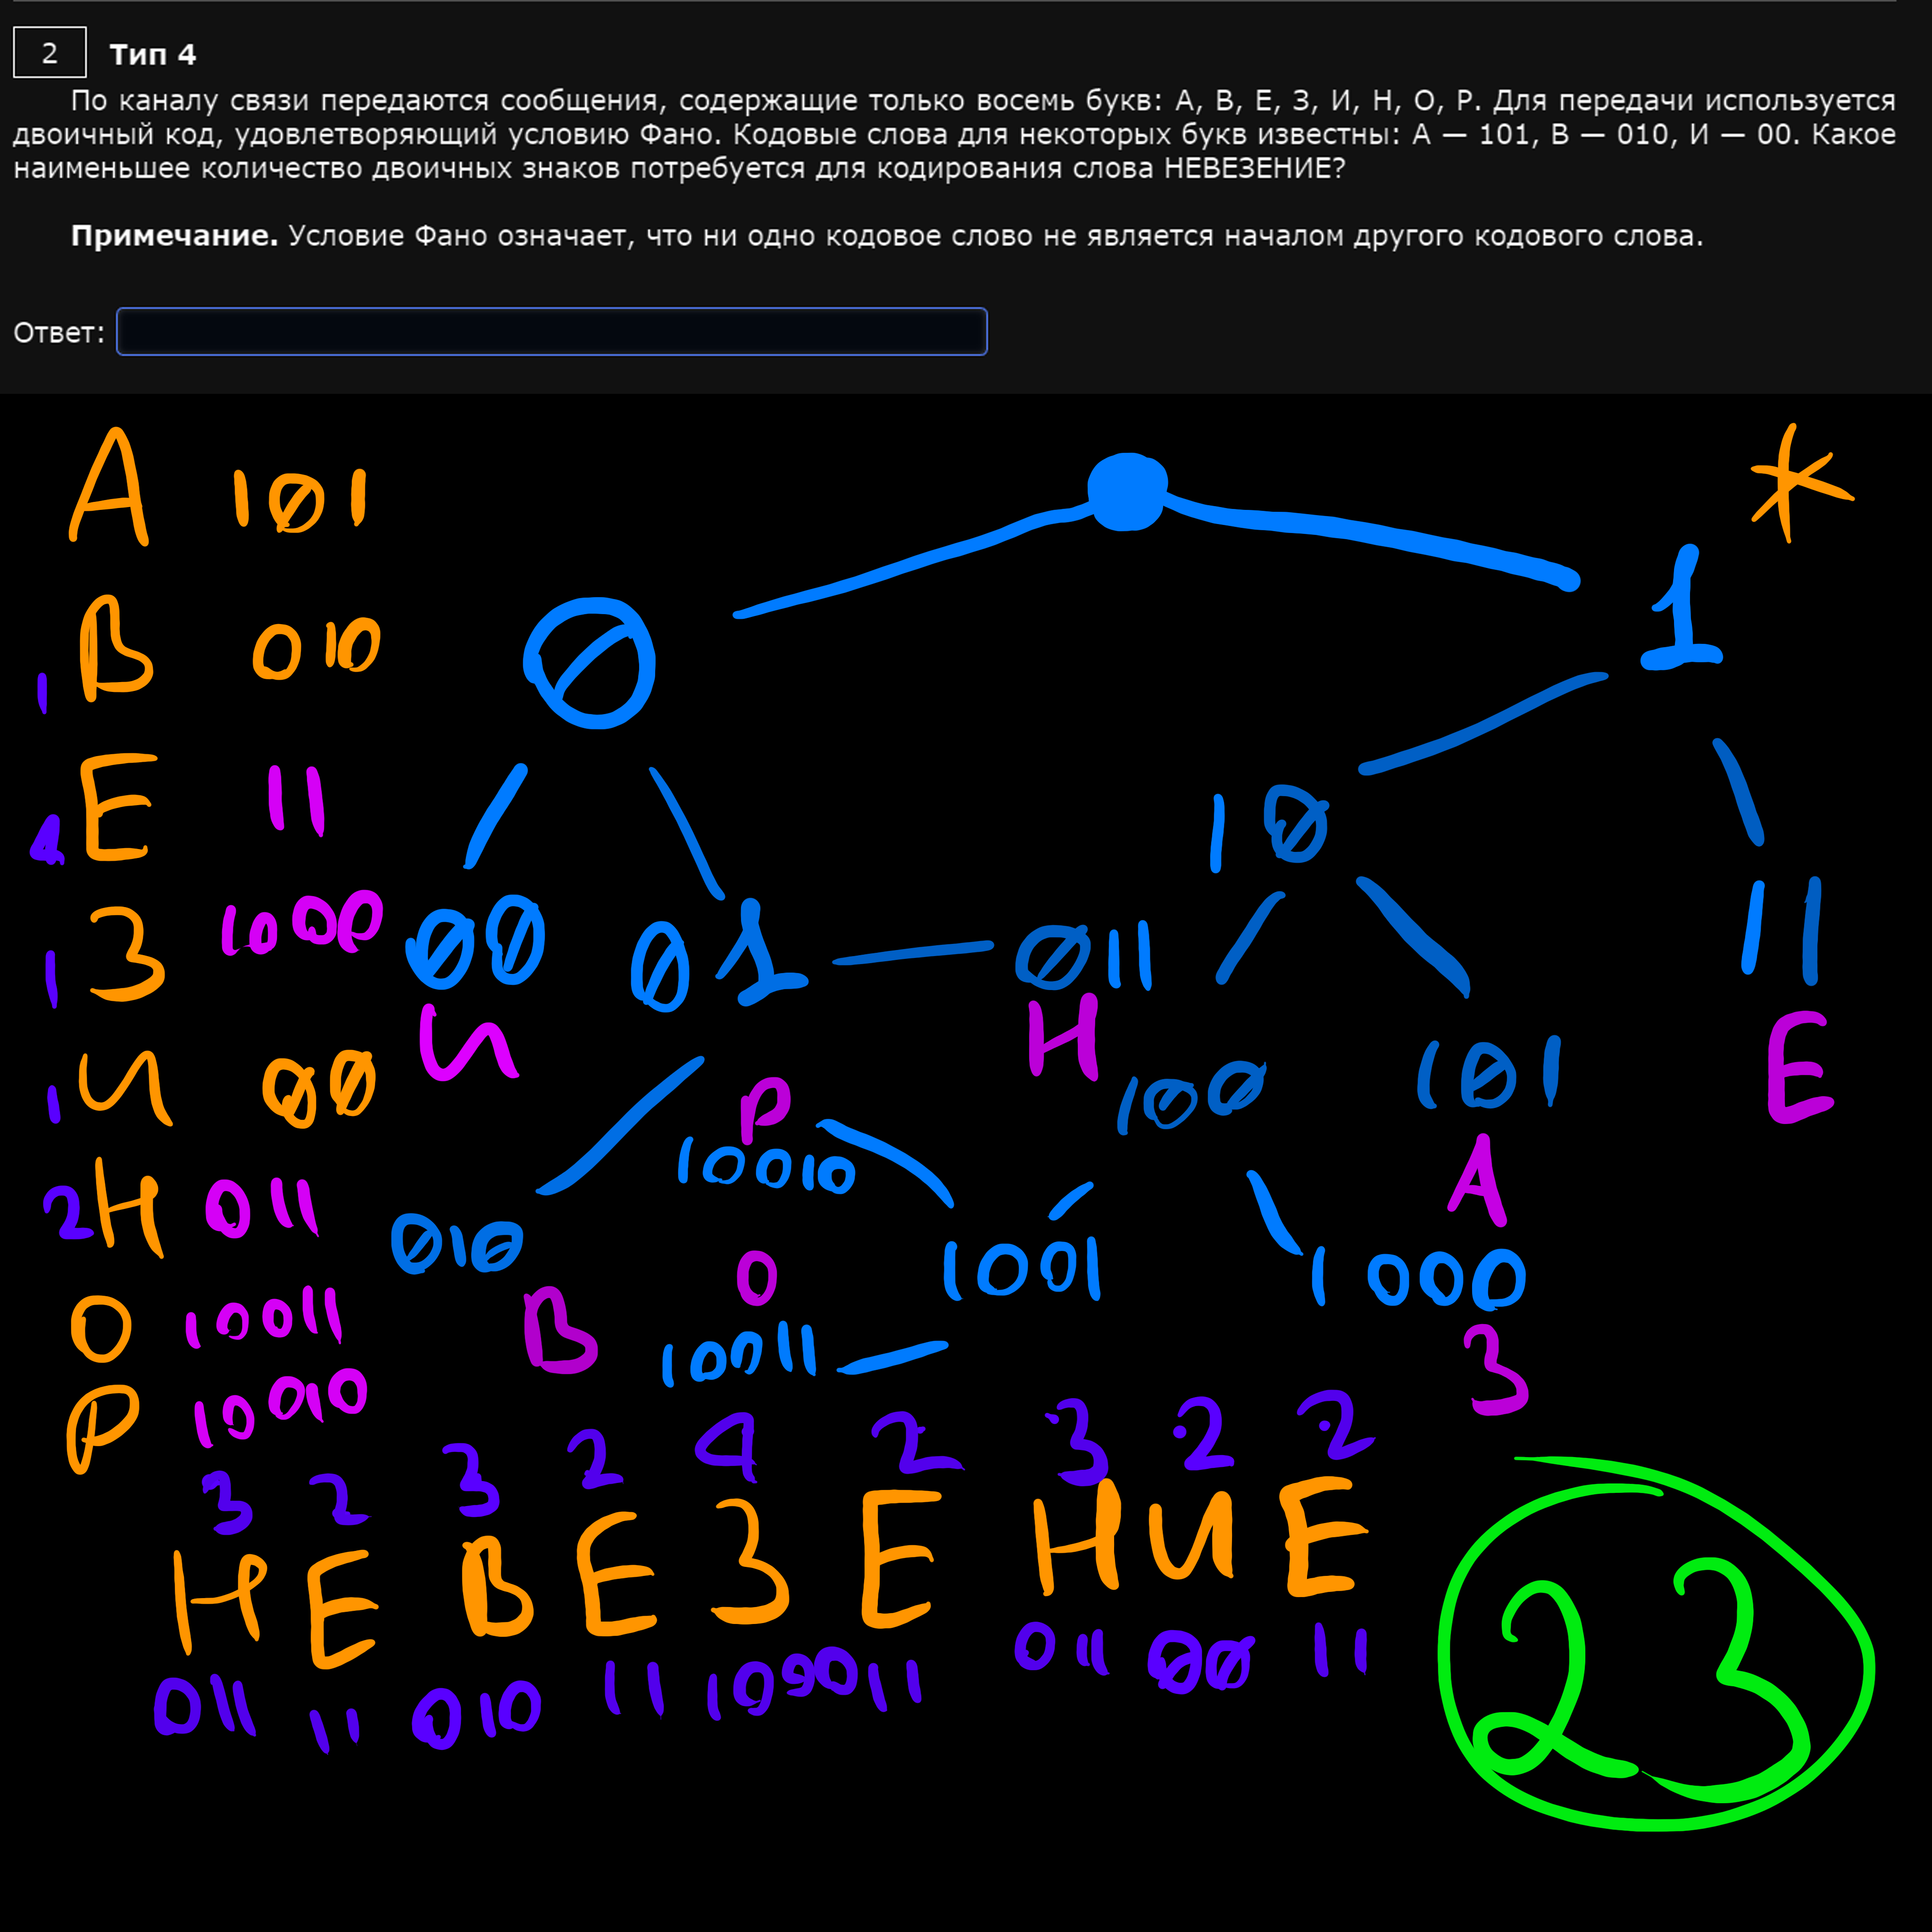 2 Тип 4
По каналу связи передаются сообщения, содержащие только восемь букв: А, В, Е, З, И, Н, О, Р. Для передачи используется
двоичный код, удовлетворяющий условию Фано. Кодовые слова для некоторых букв известны: А — 101, В — 010, И — 00. Какое
наименьшее количество двоичных знаков потребуется для кодирования слова НЕВЕЗЕНИЕ?
Примечание. Условие Фано означает, что ни одно кодовое слово не является началом другого кодового слова.
Ответ:
А 101
*
0 1
1 В 010
4 Е 11
10
1 З 1000
00 01 011 11
И Н Е
1 И 00
Р 100 101
10010
А
2 Н 011
010 1001 1000
О
О 10011
В 10011 З
Р 10010
3 2 3 2 4 2 3 2 2
Н Е В Е З Е Н И Е
011 11 010 11 1000 11 011 00 11
23